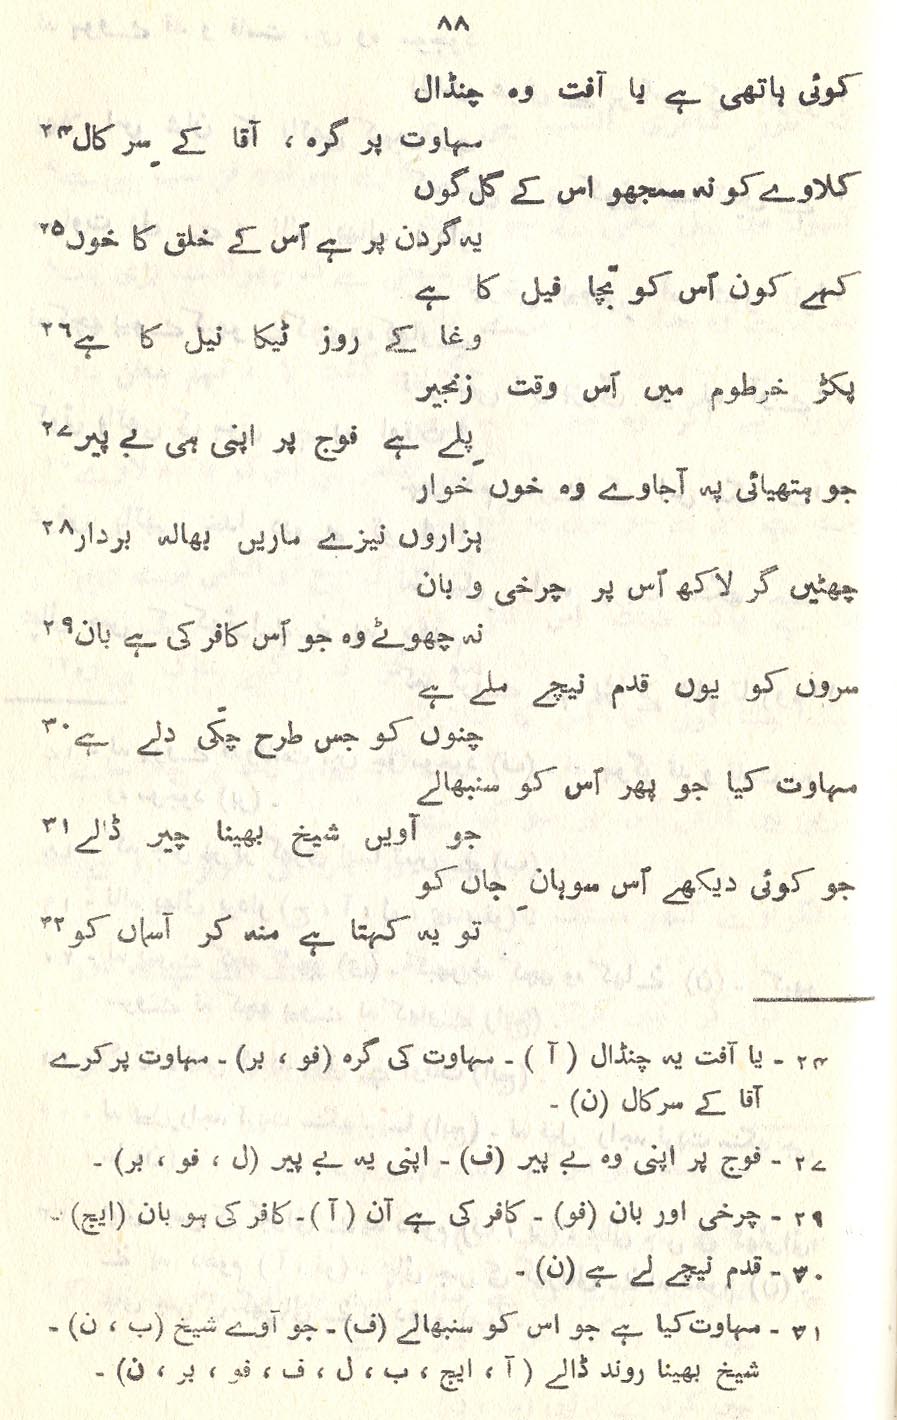 ۸۸
کوئی ہاتھی ہے یا آفت وہ چنڈال
مہاوت پر گرہ ، آقا کے سِر کال۲۴
کلاوے کو نہ سمجھو اس کے گل گوں
یہ گردن پر ہے اُس کے خلق کا خوں۲۵
کہے کون اُس کو بچّا فیل کا ہے
وغا کے روز ٹیکا نیل کا ہے۲۶
پکڑ خرطوم میں اُس وقت زنجیر
پِلے ہے فوج پر اپنی ہی بے پیر۲۷
جو ہتھیائی پہ آجاوے وہ خوں خوار
ہزاروں نیزے ماریں بھالہ بردار۲۸
چھٹیں گر لاکھ اُس پر چرخی و بان
نہ چھوٹے وہ جو اُس کافر کی ہے بان۲۹
سروں کو یوں قدم نیچے ملے ہے
چنوں کو جس طرح چکّی دلے ہے۳۰
مہاوت کیا جو پھر اُس کو سنبھالے
جو آویں شیخ بھینا چیر ڈالے۳۱
جو کوئی دیکھے اُس سوہانِ جاں کو
تو یہ کہتا ہے منہ کر آسماں کو۳۲
۲۴ ۔ یا آفت یہ چنڈال ( آ ) ۔ مہاوت کی گرہ (فو ، بر) ۔ مہاوت پر کرے
آقا کے سرکال (ن) ۔
۲۷ ۔ فوج پر اپنی وہ بے پیر (ف) ۔ اپنی یہ بے پیر (ل ، فو ، بر) ۔
۲۹ ۔ چرخی اور بان (فو) ۔ کافر کی ہے آن ( آ ) ۔ کافر کی ہو بان (ایچ) ۔
۳۰ ۔ قدم نیچے لے ہے (ن) ۔
۳۱ ۔ مہاوت کیا ہے جو اس کو سنبھالے (ف) ۔ جو آوے شیخ (ب ، ن) ۔
شیخ بھینا روند ڈالے ( آ ، ایچ ، ب ، ل ، ف ، فو ، بر ، ن) ۔